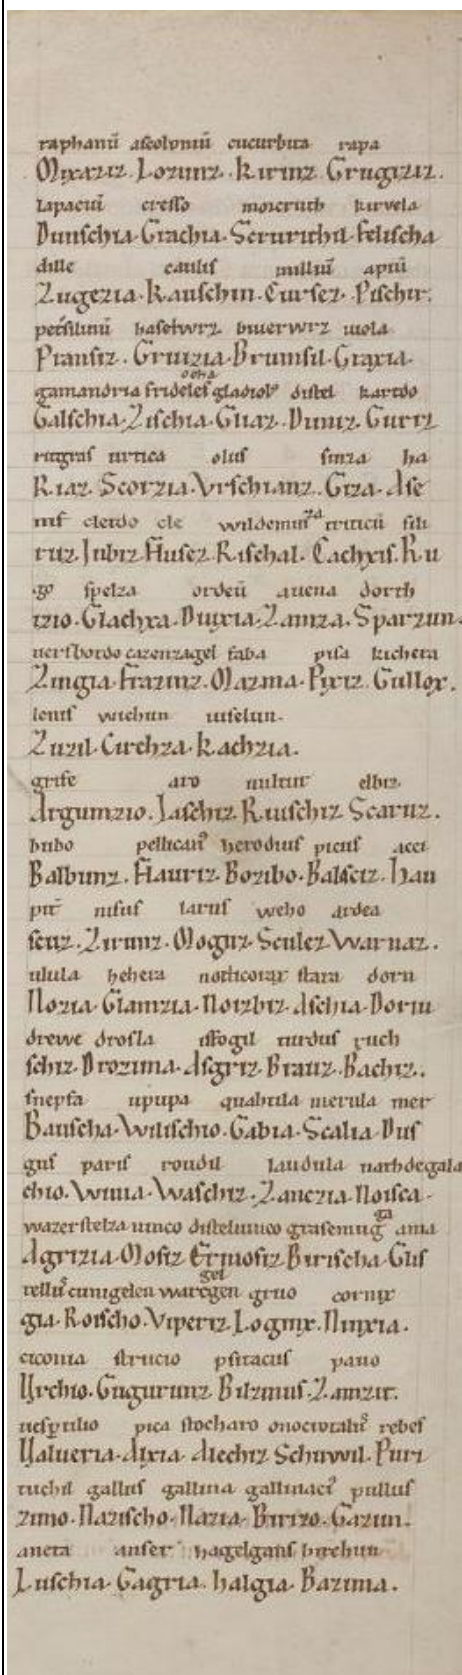 raphanū ascoloniū cucurbita rapa
Mixaziz. Lozunz. Kirinz. Grugiziz.
lapaciū cresso morcruth kirvela
Dunschia. Grachia. Scruruthil. felischa
dille caulis milliū apiū
Zugezia. Kauschin. Cursez. Pischir.
petsilinū haselwrz biuerwrz viola
Pransiz. Gruizia. Brumsil. Graxia.
ocha
gamandria frideles gladiol' distel kartdo
Galschia. Zischia. Gliaz. Duniz. Gurtz
rutgras urtica olus sinza ha
Riaz. Scorzia. Vrschianz. Giza. Ase
nif cletdo cle wildemin za triticū sili
ruz. Iubiz. Husez. Rischal. Cachxis. Ru
go spelza ordeū auena dorth
izio. Glachxa. Duxia. Zamza. Sparzun.
uersbotdo cazenzagel faba pisa kichera
Zingia. Frazinz. Mazma. Pixiz. Gullox.
lentif wichun uiselun.
Zuzil. Circhza. Kachzia.
grife aro uultur elbiz
Argumzio. Iaschiz. Riuschiz. Scaruz.
bubo pellican' herodius picus acci
Balbunz. Hauriz. Bozibo. Balsciz. Hau
pit nisus larus weho ardea
scuz. Zirunz. Moguz. Sculez. Warnaz.
ulula hehera nocticorax stara dorn
Nozia. Glamzia. Noizbiz. Aschia. Doriu
drewe drosla isfogil turdus ruch
schiz. Drozima. Asgriz. Brauz. Bachiz.
snepfa upupa quahtila merula mer
Bauscha. Wilischio. Gabia. Scalia. Dus
gus paris rondil laudula nathdegala
chio. Winia. Waschiz. Zanczia. Noisca.
wazerstelza uinco distelunco grasemug ga ama
Agrizia. Mosiz. Ermosiz. Birischa. Glis
gel
tellus cunigelen waregen gruo cornix
gia. Roischo. Viperiz. Loginx. Ninxia.
ciconia strucio psitacus pauo
Urchio. Gugurunz. Bilzmus. Zamzit.
uesptilio pica stocharo onocrotalus rebes
Ualueria. Aixia. Alechiz. Schuwil. Puri
tuchil gallus gallina gallinaci' pullus
zimo. Nazischo. Nazia. Birizo. Gazun.
aneta anser hagelgans birchun
Luschia. Gagria. halgia. Bazima.